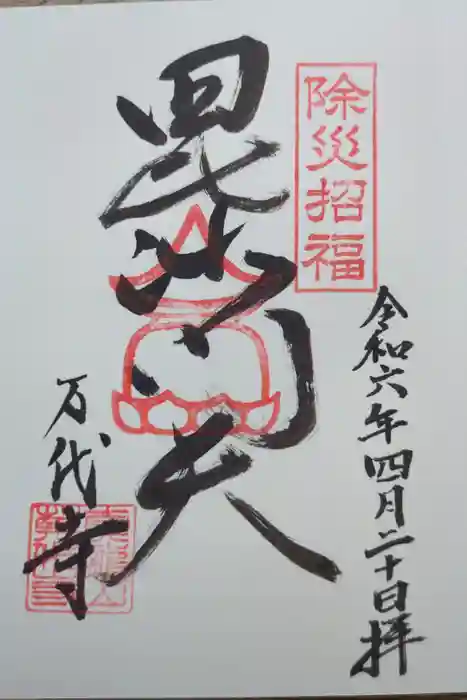 除災招福
令和六年四月二十日拝
毘沙門天
万代寺